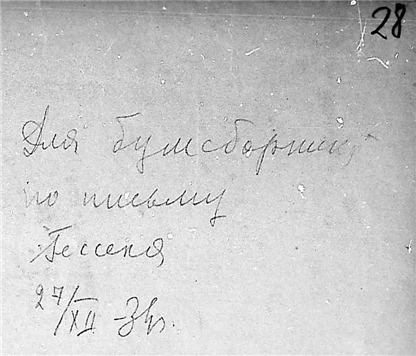 28
Для бумсборника
по письму
Гессена
27/XII 34г.